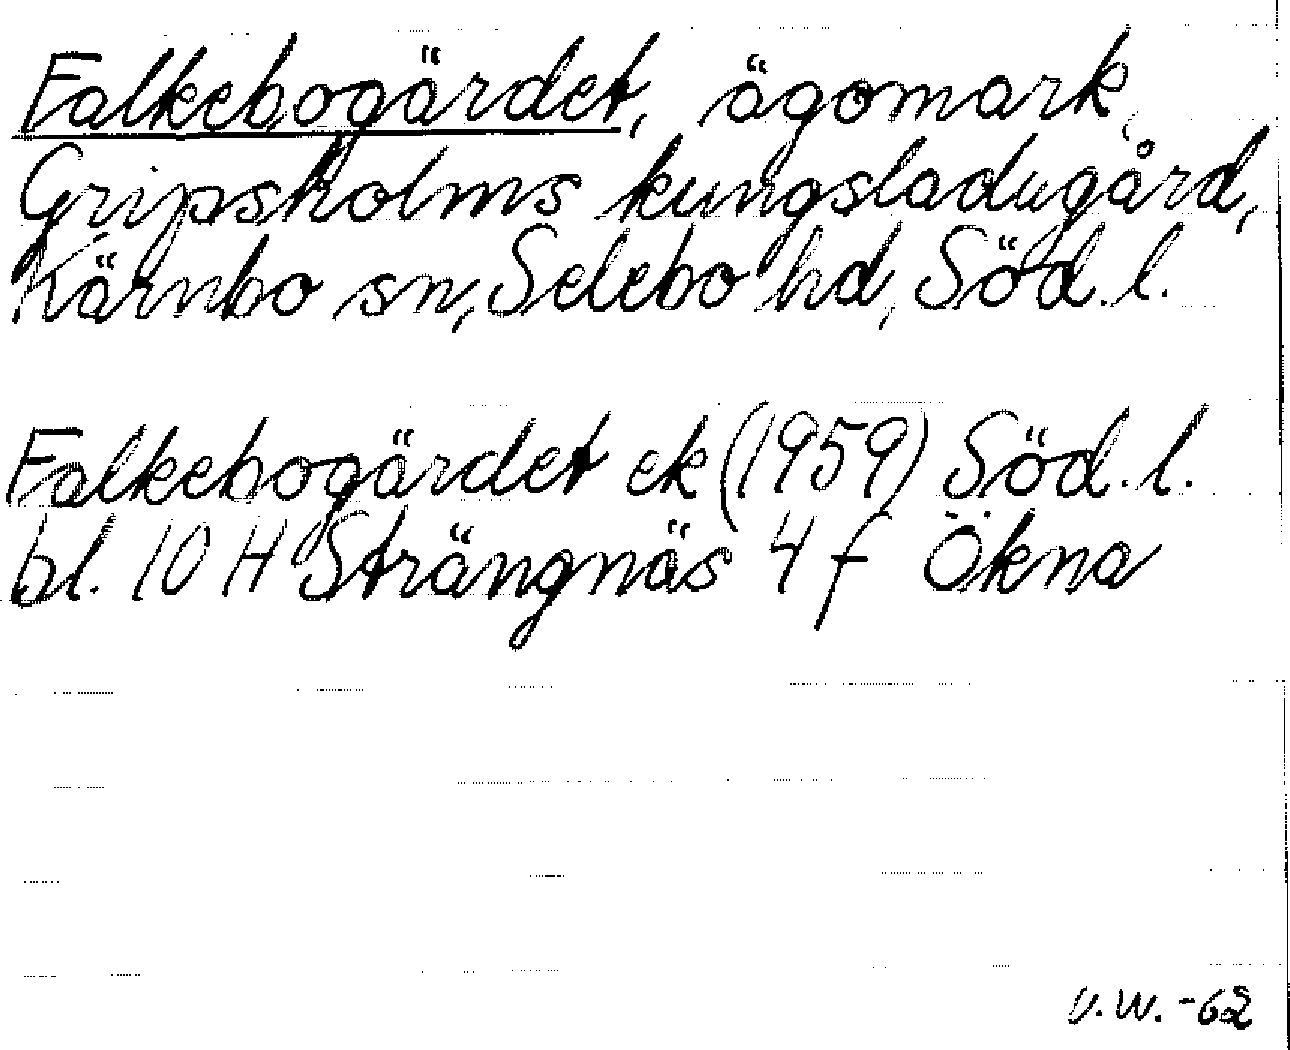 Falkebogärdet, ägomark,
Gripsholms kungsladugård,
Kärnbo sn, Selebo hd, Söd. l.
Falkebogärdet ek (1959) Söd. l.
bl. 10 H Strängnäs 4 f Ökna
V.W. -62